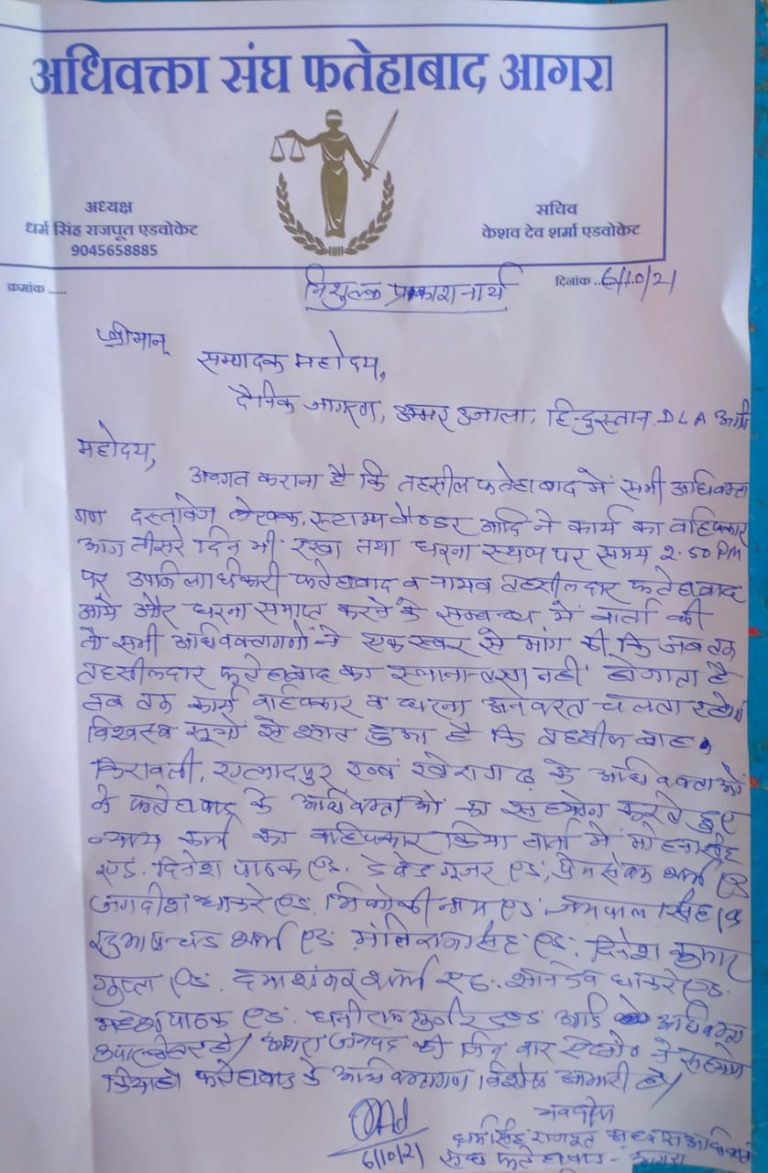 अधिवक्ता संघ फतेहाबाद आगरा
अध्यक्ष
धर्म सिंह राजपूत एडवोकेट
9045658885
सचिव
केशव देव शर्मा एडवोकेट
क्रमांक .....
दिनांक ..6/10/21
निशुल्क प्रकाशनार्थ
श्रीमान्
सम्पादक महोदय,
दैनिक जागरण, अमर उजाला, हिन्दुस्तान, DLA आदि
महोदय,
अवगत कराना है कि तहसील फतेहाबाद में सभी अधिवक्ता
गण दस्तावेज लेखक, स्टाम्प वैण्डर आदि ने कार्य का वहिष्कार
आज तीसरे दिन भी रखा तथा धरना स्थल पर समय 2.50 PM
पर उपजिलाधिकारी फतेहाबाद व नायब तहसीलदार फतेहाबाद
आये और धरना समाप्त करने के सम्बन्ध में वार्ता की
तो सभी अधिवक्तागणों ने एक स्वर से मांग की कि जब तक
तहसीलदार फतेहाबाद का स्थानान्तरण नहीं हो जाता है
तब तक कार्य वहिष्कार व धरना अनवरत चलता रहेगा
विश्वस्त सूत्रों से ज्ञात हुआ है कि तहसील बाह,
किरावली, एत्मादपुर एवं खेरागढ़ के अधिवक्ताओं
ने फतेहाबाद के अधिवक्ताओं का सहयोग करते हुए
न्याय कार्य का वहिष्कार किया वार्ता में
एड. दिनेश पाठक एड. देवेन्द्र गुर्जर एड, प्रेम शर्मा एड
जगदीश धाकरे एड. एड. जयपाल सिंह एड
शर्मा एड एड. दिनेश कुमार
गुप्ता एड. शर्मा एड. धाकरे एड.
पाठक एड. एड आदि अधिवक्ता
उपस्थित रहे। आगरा जनपद की जिन बार ने सहयोग
किया है फतेहाबाद के अधिवक्तागण आभारी है।
6/10/21
भवदीय
धर्म सिंह राजपूत अध्यक्ष अधिवक्ता
संघ फतेहाबाद - आगरा